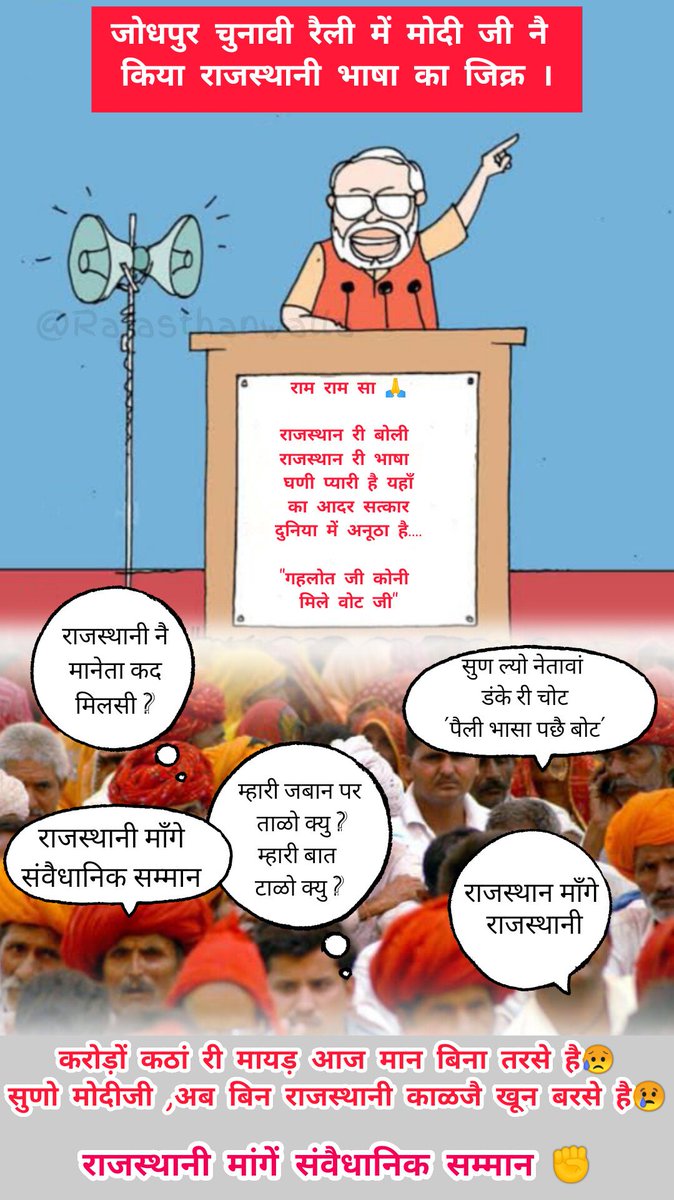 जोधपुर चुनावी रैली में मोदी जी नै
किया राजस्थानी भाषा का जिक्र ।
@Rajasthanwale
राम राम सा 🙏
राजस्थान री बोली
राजस्थान री भाषा
घणी प्यारी है यहाँ
का आदर सत्कार
दुनिया में अनूठा है....
"गहलोत जी कोनी
मिले वोट जी"
राजस्थानी नै
मानेता कद
मिलसी ?
सुण ल्यो नेतावां
डंके री चोट
'पैली भासा पछै बोट'
म्हारी जबान पर
ताळो क्यु ?
म्हारी बात
टाळो क्यु ?
राजस्थानी माँगे
संवैधानिक सम्मान
राजस्थान माँगे
राजस्थानी
करोड़ों कठां री मायड़ आज मान बिना तरसे है😥
सुणो मोदीजी ,अब बिन राजस्थानी काळजै खून बरसे है😢
राजस्थानी मांगें संवैधानिक सम्मान ✊